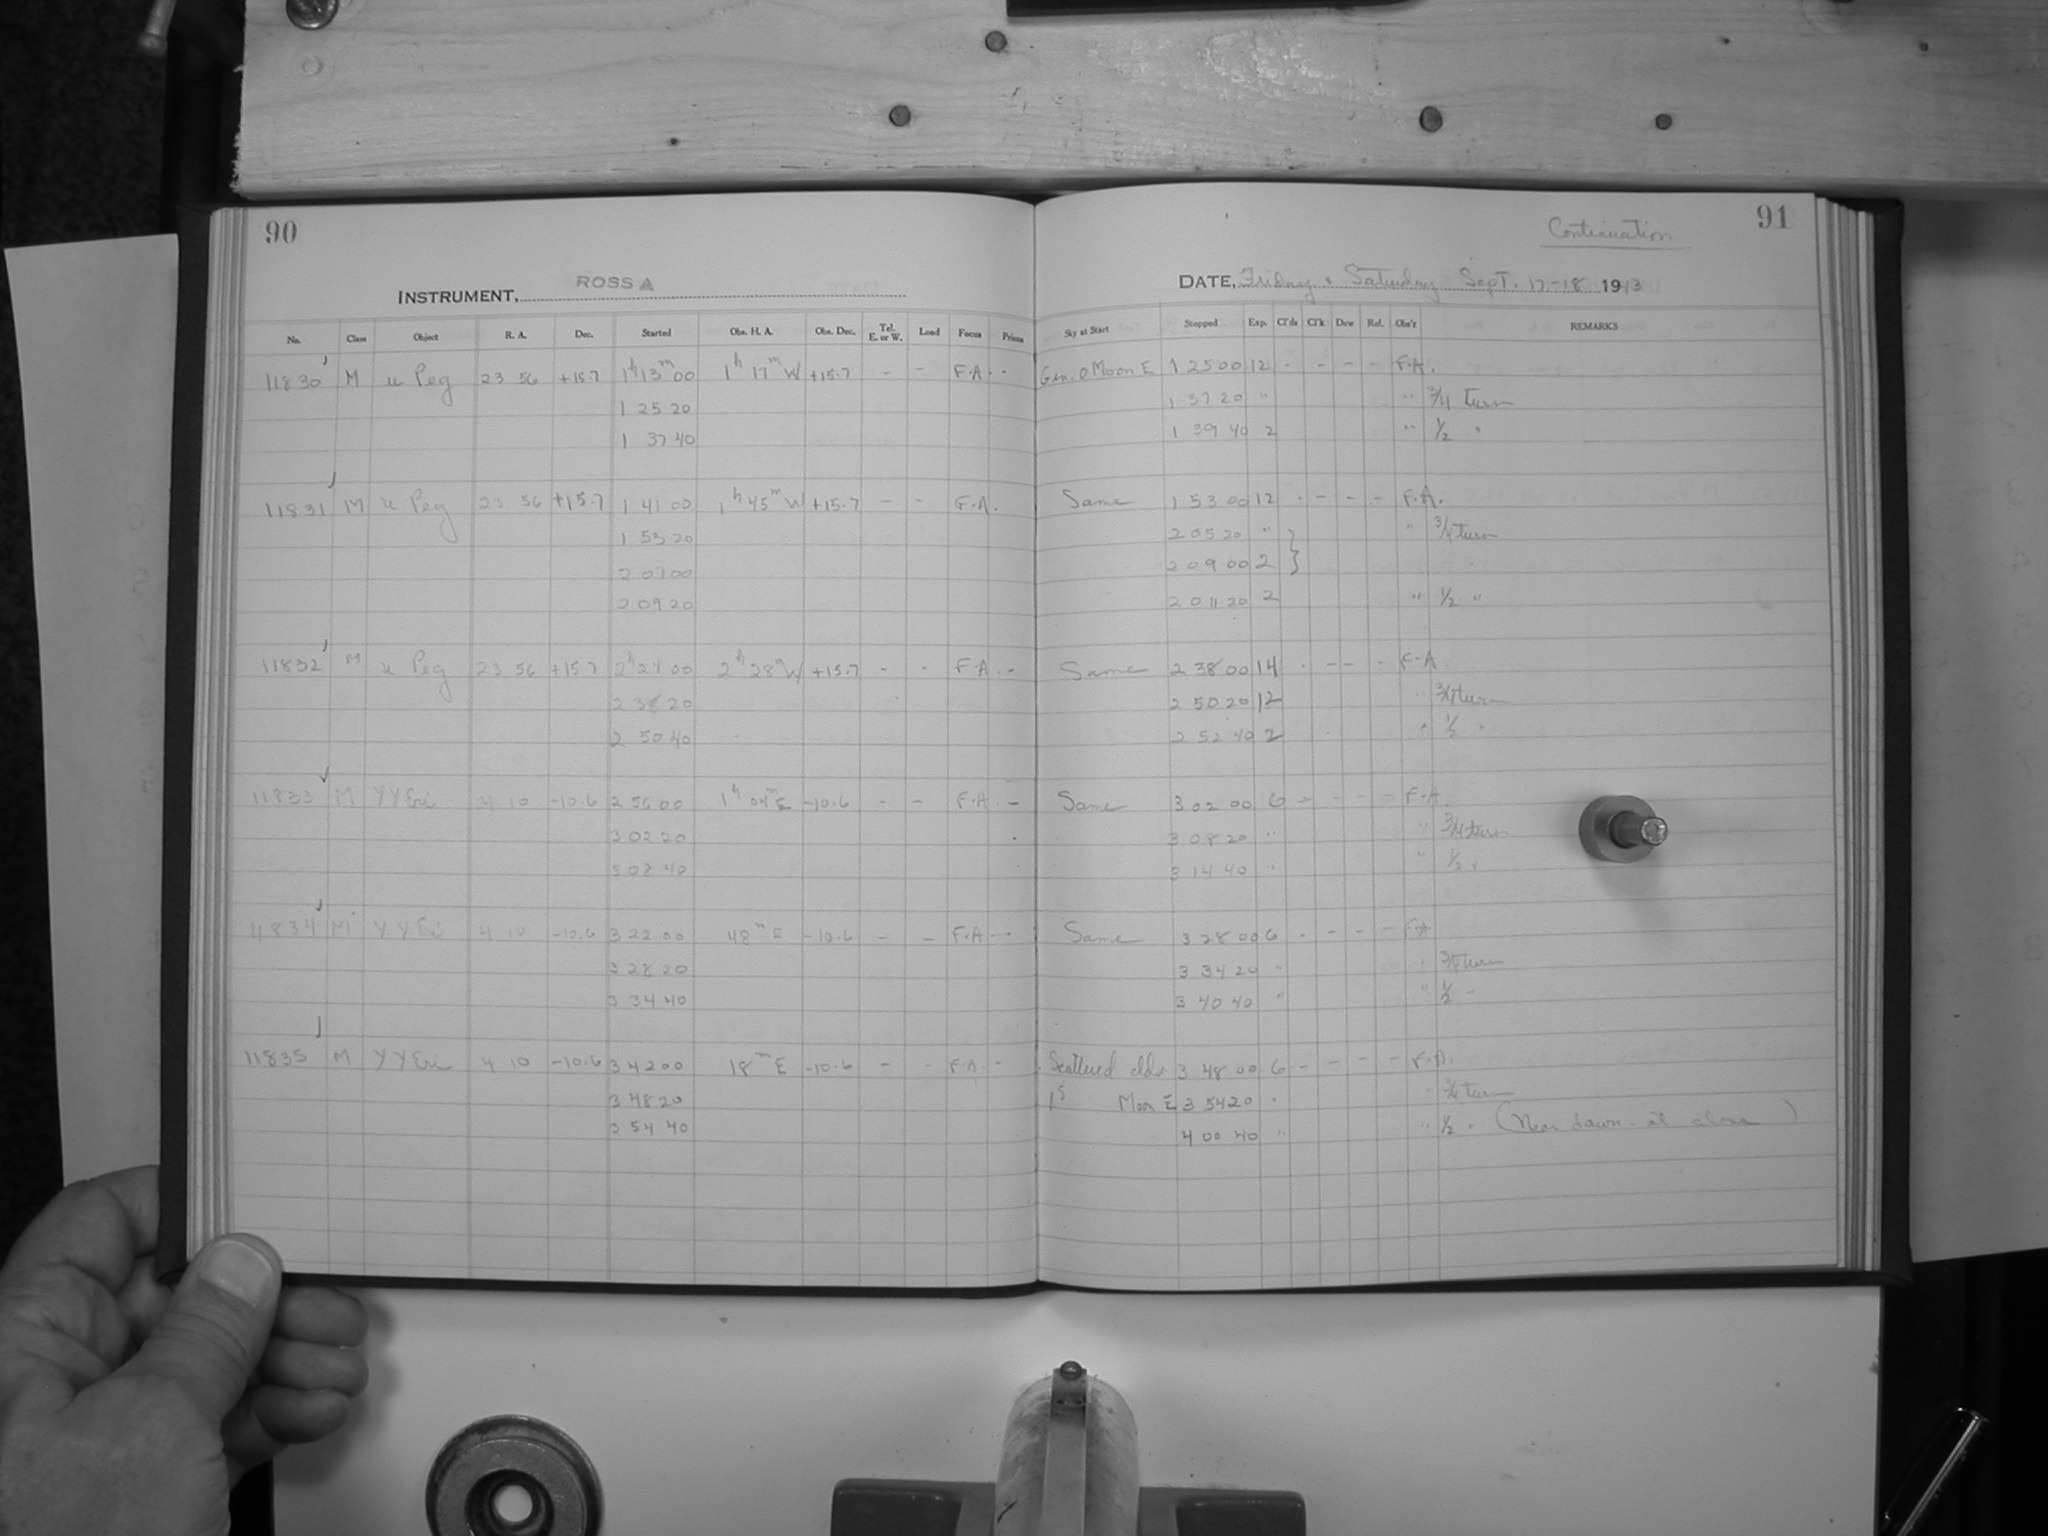 90
INSTRUMENT, ROSS A
No. Class Object R. A. Dec. Started Obs. H. A. Obs. Dec. Tel. E. or W. Load Focus Prisms
11830 M u Peg 23 56 +15.7 1h 13m 00 1h 17m W +15.7 - - F.A. -
1 25 20
1 37 40
11831 M u Peg 23 56 +15.7 1 41 00 1h 45m W +15.7 - - F.A.
1 53 20
2 07 00
2 09 20
11832 M u Peg 23 56 +15.7 2h 24 00 2h 28m W +15.7 - - F.A. -
2 38 20
2 50 40
11833 M YY Eri 4 10 -10.6 2 56 00 1h 04m E -10.6 - - F.A -
3 02 20
3 08 40
11834 M YY Eri 4 10 -10.6 3 22 00 48m E -10.6 - - F.A -
3 28 20
3 34 40
11835 M YY Eri 4 10 -10.6 3 42 00 18m E -10.6 - - F.A. -
3 48 20
3 54 40
91
Continuation
DATE, Friday & Saturday Sept. 17-18 1943
Sky at Start Stopped Exp. Cl'ds Cl'k Dew Ref. Obs'r REMARKS
Moon E 1 25 00 12 - - - - F.A.
1 37 20 " " 3/4 turn
1 39 40 2 " 1/2 "
Same 1 53 00 12 - - - - F.A.
2 05 20 " } " 3/4 turn
2 09 00 2 }
2 01 1 20 2 " 1/2 "
Same 2 38 00 14 - - - - F.A
2 50 20 12 " 3/4 turn
2 52 40 2 " 1/2 "
Same 3 02 00 6 - - - - F.A.
3 08 20 " " 3/4 turn
3 14 40 " " 1/2 "
Same 3 28 00 6 - - - - F.A
3 34 20 " " 3/4 turn
3 40 40 " " 1/2 "
Scattered clds 3 48 00 6 - - - - F.A.
Moon E 3 54 20 " " 3/4 turn
4 00 40 " " 1/2 " (Near dawn at close)